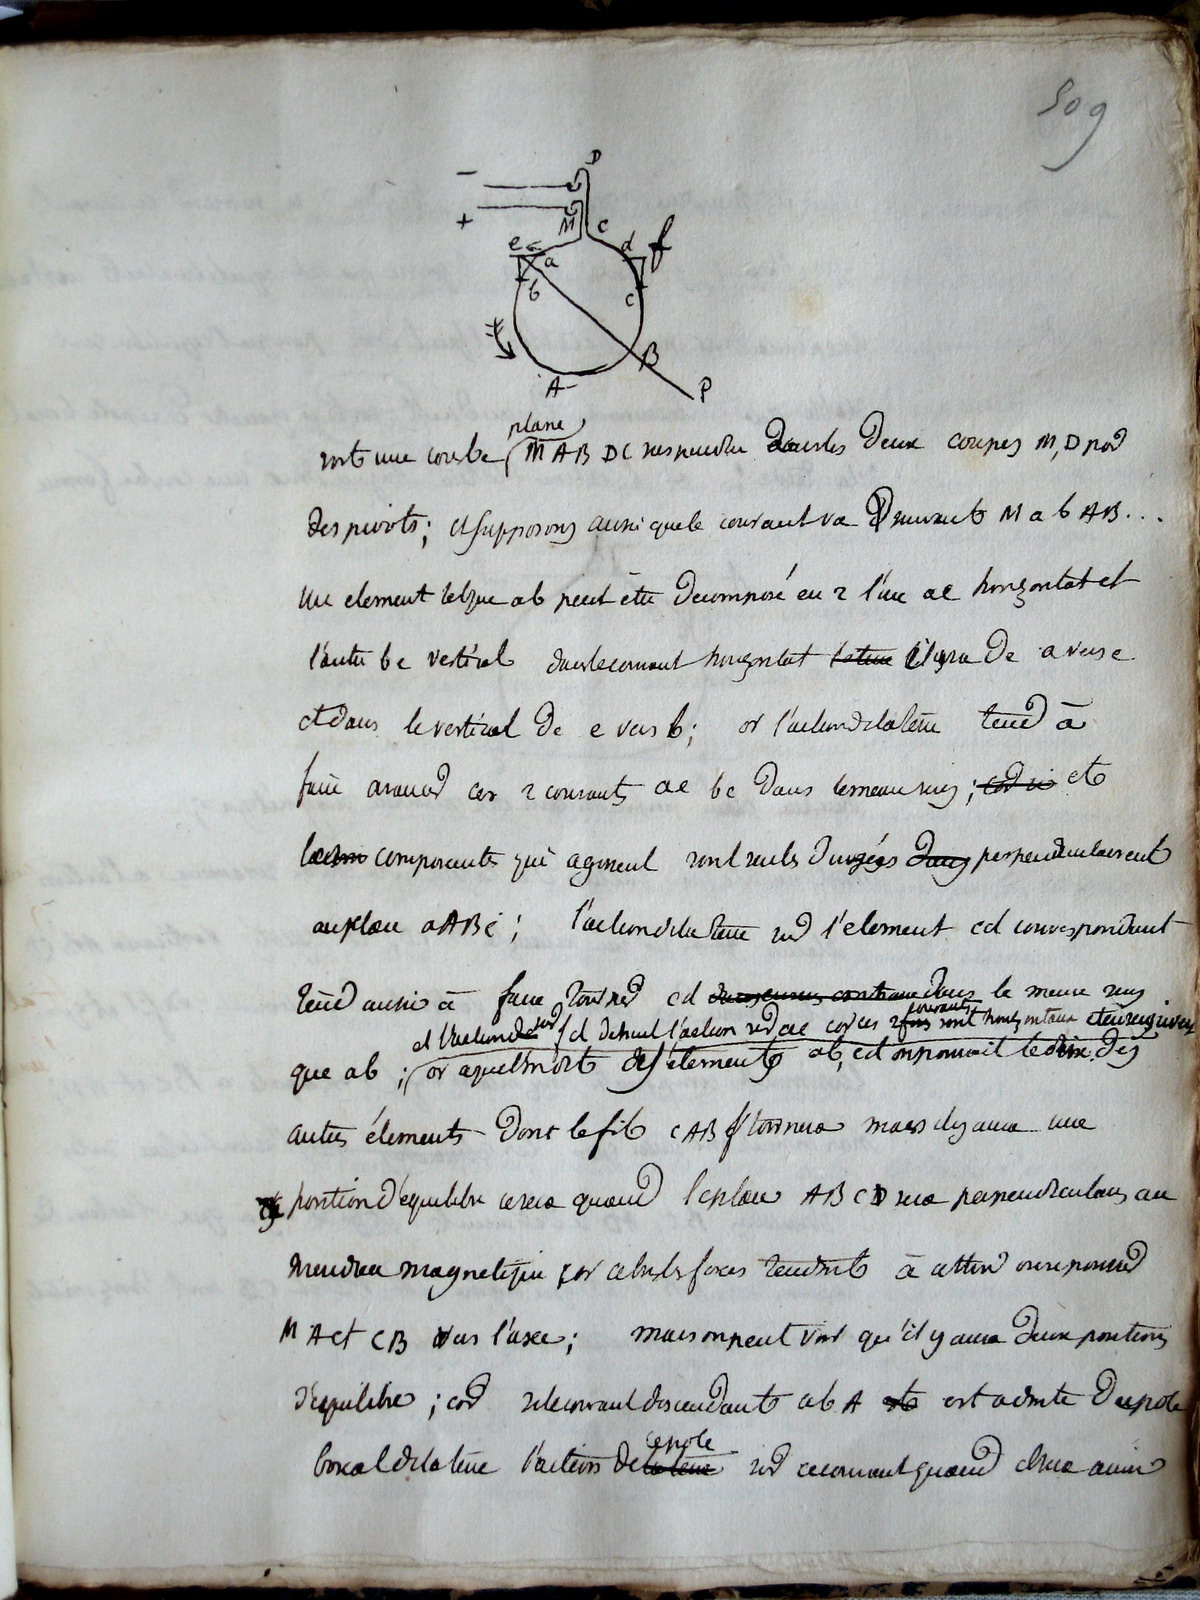 509
D
-
+
M
c
e
a
d
f
b
c
A
B
P
plane
soit une courbe MABDC suspendue dans les deux coupes M, D par
des pivots; et supposons aussi que le courant va suivant M a b AB...
Un element tel que ab peut être decomposé en 2 l'un ae horizontal et
l'autre be vertical dans le courant horizontal il ira de a vers e
et dans le vertical de e vers b; or l'action de la terre tend à
faire avancer ces 2 courants ae be dans le meme sens; et
composantes qui agissent sont seules dirigées perpendiculairement
au plan aABc; l'action de la terre sur l'element cd correspondant
tend aussi à faire tourner cd dans le meme sens
et l'action sur fd detruit l'action sur ae car ces 2 courants sont horizontaux et en sens inverse
que ab; or ce qu'est des elements ab, cd on pourrait le dire des
autres élements donc le fil CAB tournera mais il y aura une
position d'équilibre ce sera quand le plan ABCD sera perpendiculaire au
meridien magnetique car alors les forces tendent à attirer ou repousser
MA et CB vers l'axe; mais on peut voir qu'il y aura deux positions
d'équilibre; car si le courant descendant abA est a droite du pole
le pole
boréal de la terre l'action de sur ce courant quand il sera ainsi